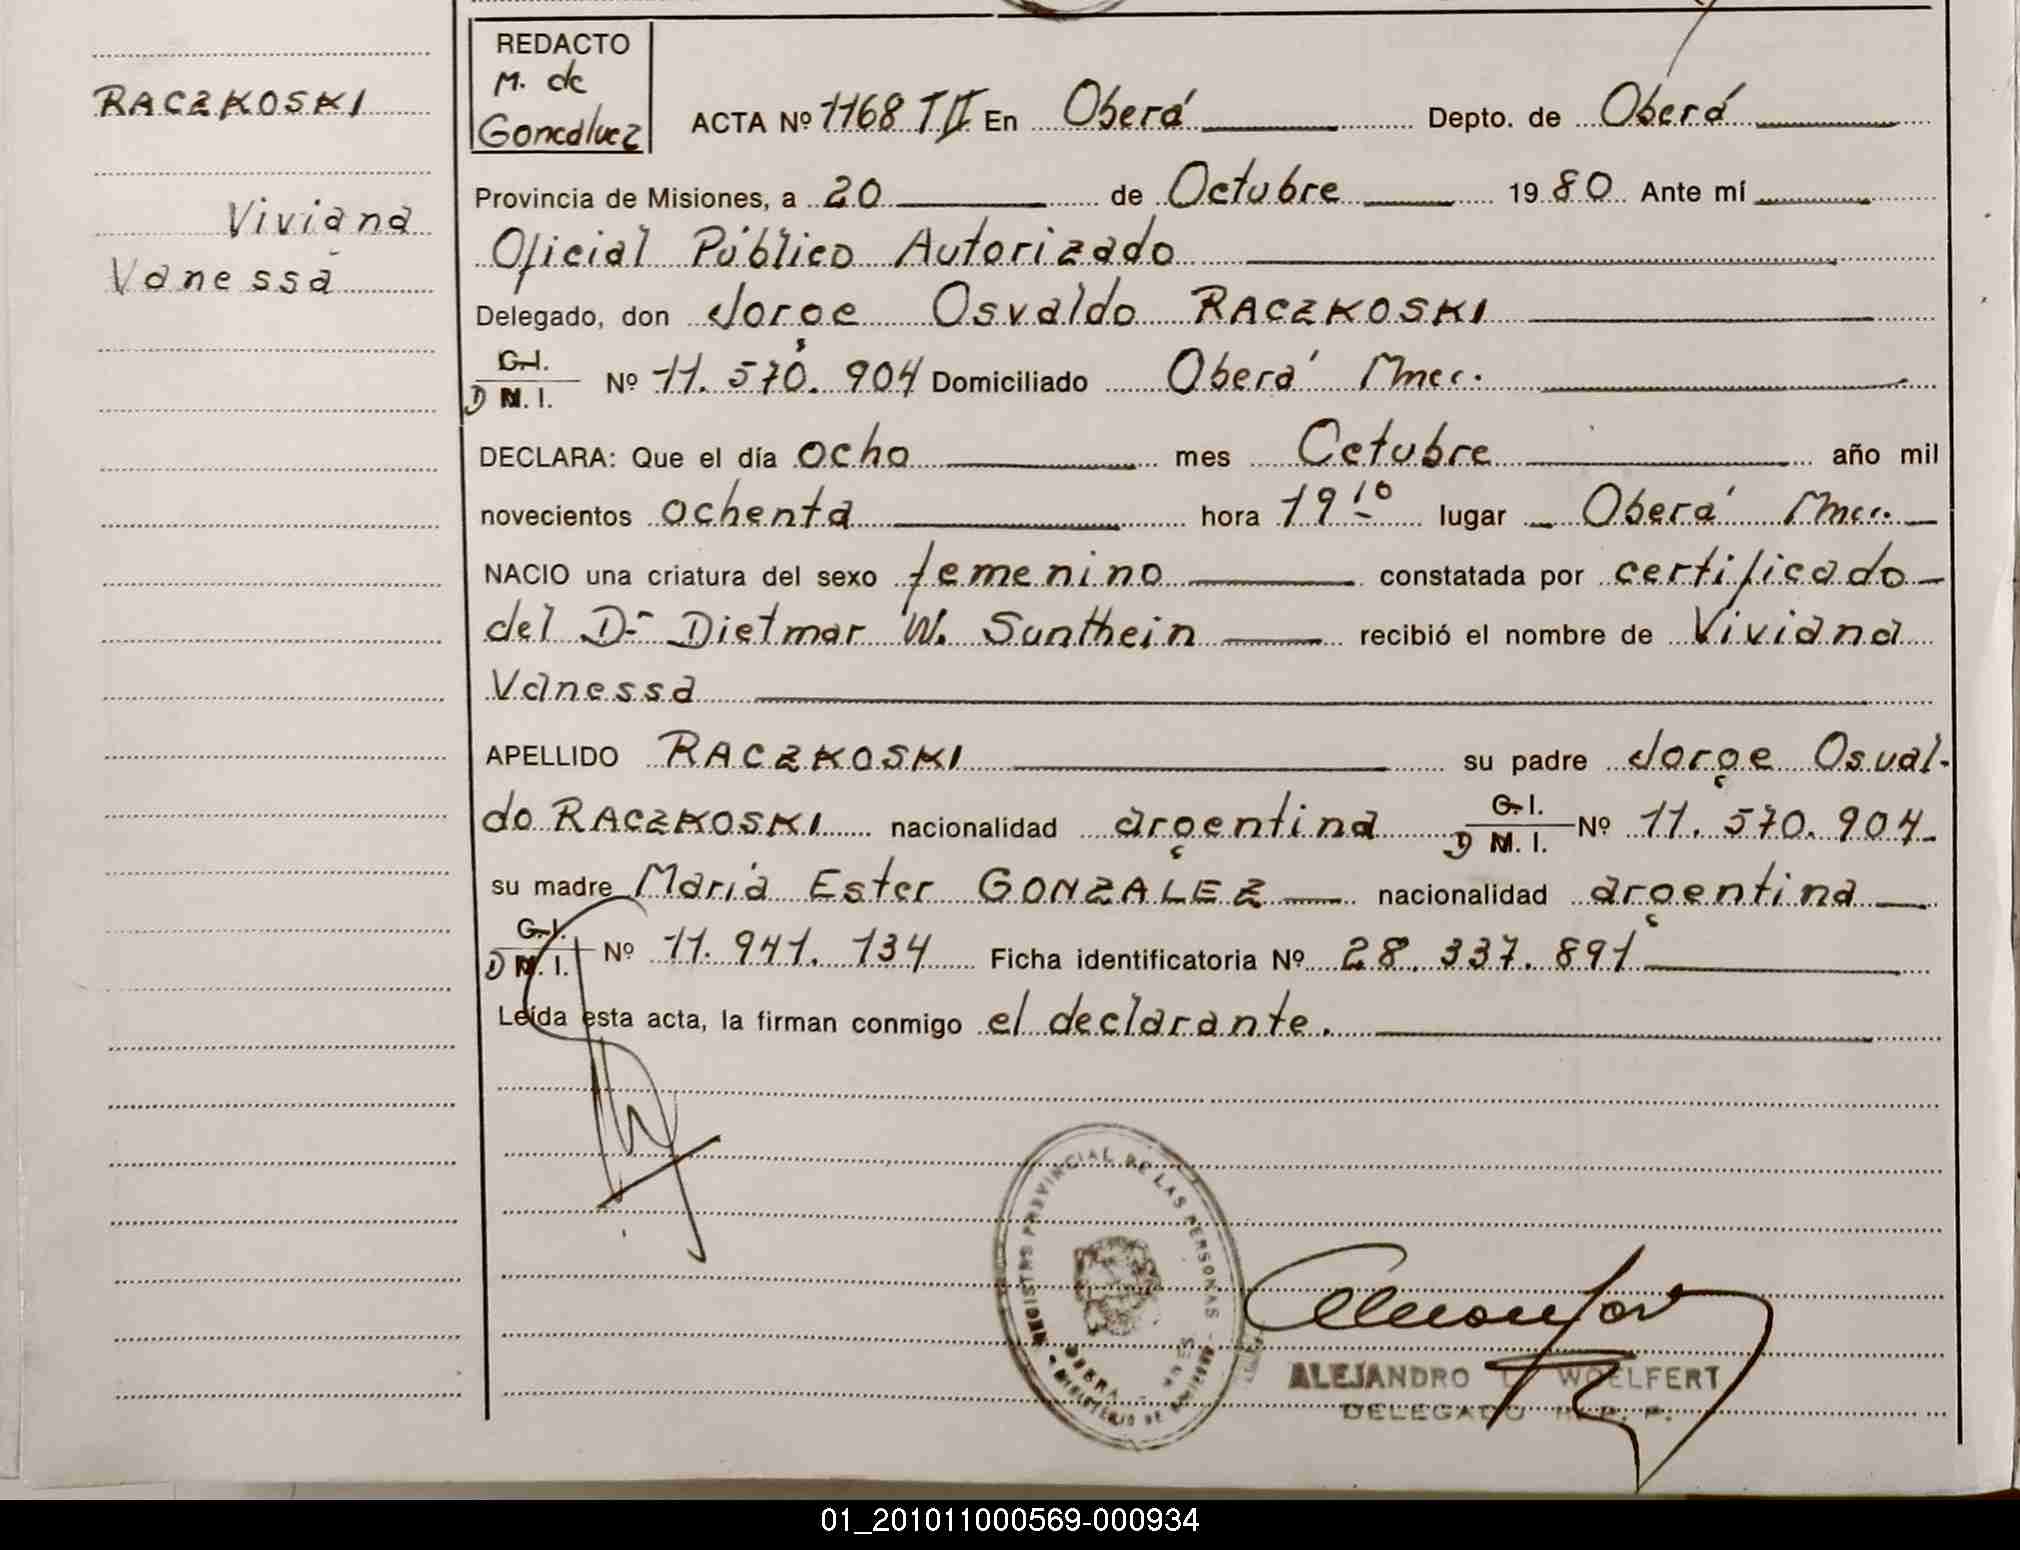 RACZKOSKI
Viviana
Vanessa
REDACTO
M. de
Goncalvez
ACTA Nº 1168 TII En Oberá Depto. de Oberá
Provincia de Misiones, a 20 de Octubre 1980 Ante mí
Oficial Público Autorizado
Delegado, don Jorge Osvaldo RACZKOSKI
C.I.
D M. I. Nº 11.570.904 Domiciliado Oberá Mnes.
DECLARA: Que el día ocho mes Octubre año mil
novecientos ochenta hora 19 10 lugar Oberá Mnes.
NACIO una criatura del sexo femenino constatada por certificado
del Dr. Dietmar W. Sunthein recibió el nombre de Viviana
Vanessa
APELLIDO RACZKOSKI su padre Jorge Osval-
do RACZKOSKI nacionalidad argentina C.I. D M. I. Nº 11.570.904
su madre María Ester GONZALEZ nacionalidad argentina
C.I.
D M. I. Nº 11.941.134 Ficha identificatoria Nº 28.337.891
Leída esta acta, la firman conmigo el declarante.
PROVINCIAL DE LAS PERSONAS
OBERA
MINISTERIO DE GOBIERNO
ALEJANDRO WOELFERT
DELEGADO R. P. P.
01_201011000569-000934